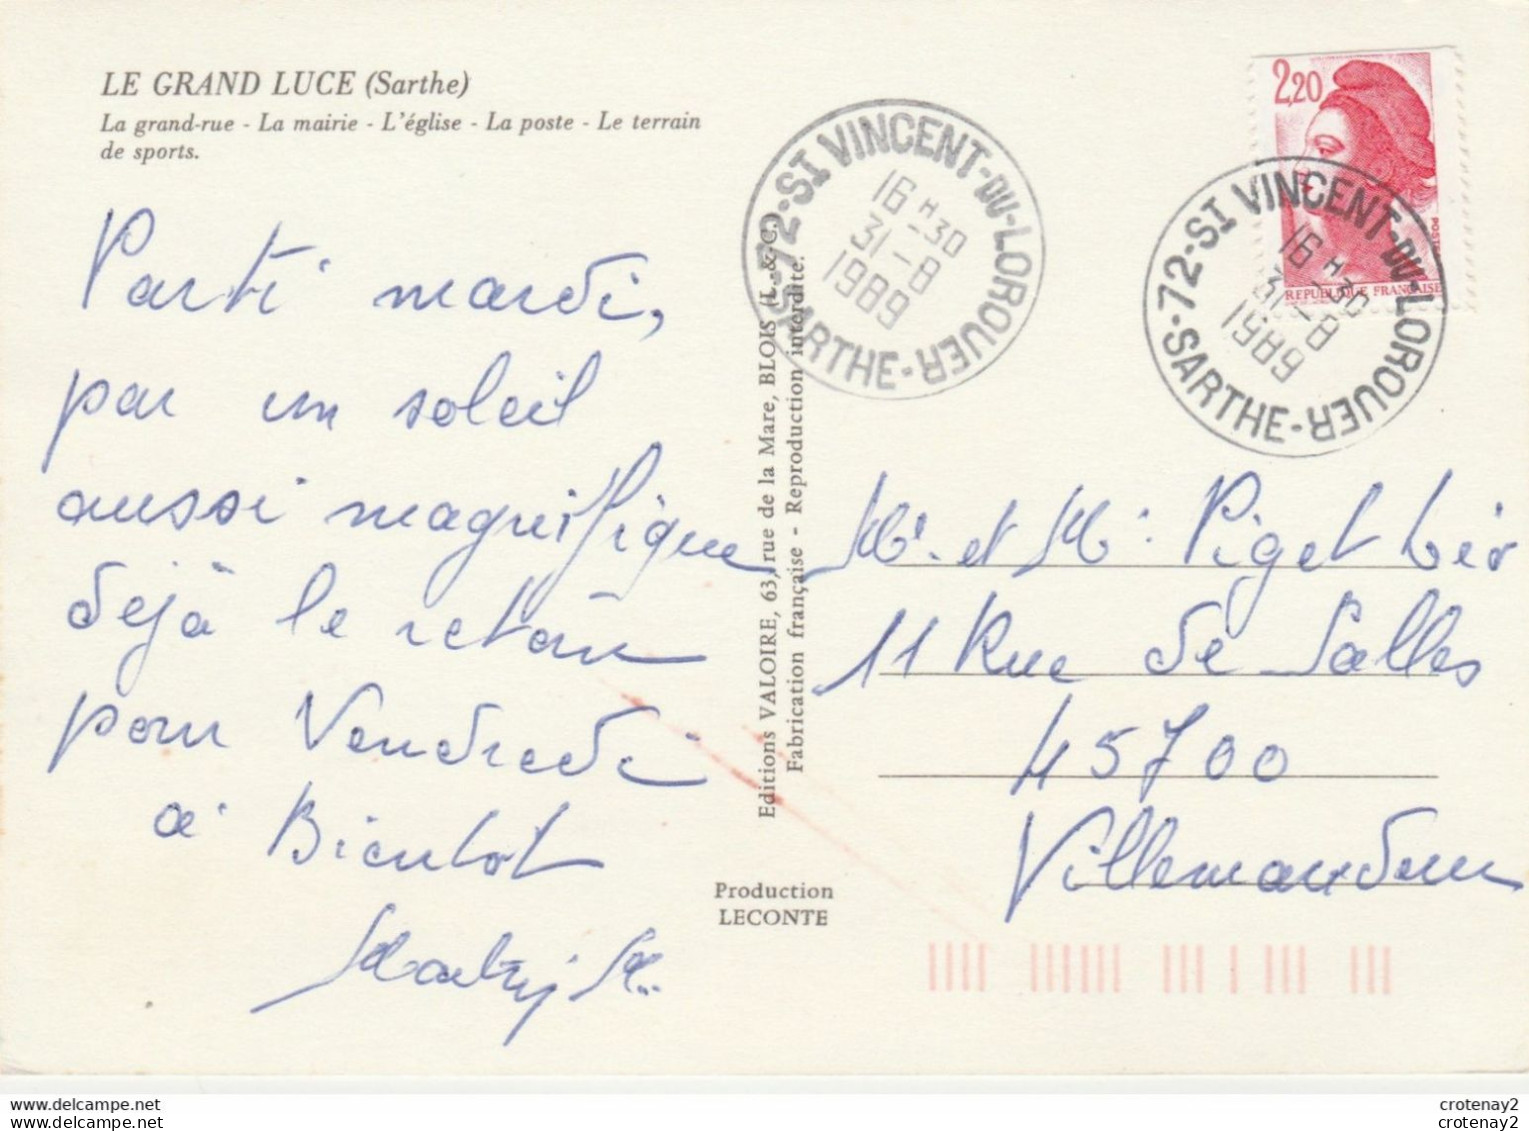 LE GRAND LUCE (Sarthe)
La grand-rue - La mairie - L'église - La poste - Le terrain
de sports.
Parti mardi,
par un soleil
aussi magnifique
déjà le retour
pour Vendredi
a Bientot
72-ST VINCENT-DU-LOROUER
SARTHE
16 H 30
31-8
1989
2,20
POSTES
REPUBLIQUE FRANÇAISE
72-ST VINCENT-DU-LOROUER
SARTHE
16 H 30
31-8
1989
Editions VALOIRE, 63, rue de la Mare, BLOIS (L.-&-C.)
Fabrication française - Reproduction interdite.
Production
LECONTE
et Piget Léo
11 Rue de Salles
45700
Villemandeur
crotenay2
crotenay2
www.delcampe.net
www.delcampe.net